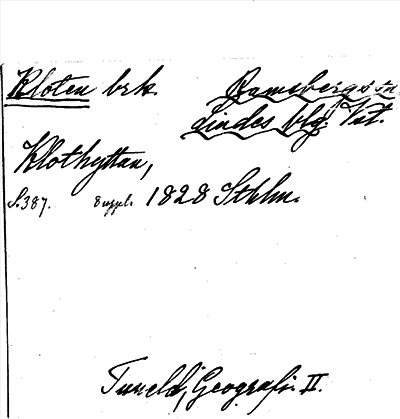 Kloten brk. Ramsbergs sn.
Lindes blg. Vstm.
Klothyttan,
S. 387. Suppl. 1828 Sthlm.
Tuneld, Geografi II.